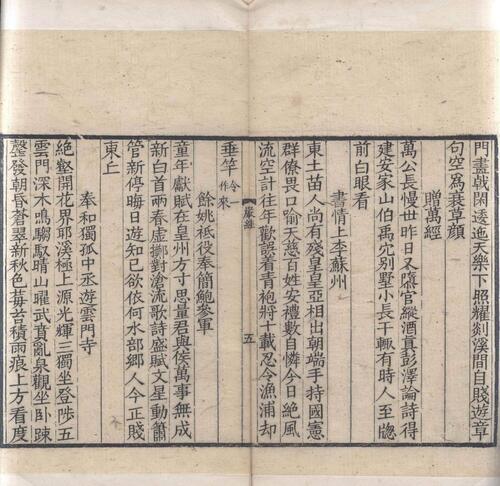 門畫戟閑逶迤天樂下照耀剡溪間自賤遊章
句空爲衰草顔
贈萬經
萬公長慢世昨日又隳官縱酒真彭澤論詩得
建安家山伯禹穴別墅小長干輒有時人至牕
前白眼看
書情上李蘇州
東土苗人尚有殘皇皇亞相出朝端手持國憲
群僚畏口喻天慈百姓安禮數自憐今日絕風
流空計往年歡誤着青袍將十載忍令漁浦却
垂竿令一作來
嚴維
五
餘姚祗役奉簡鮑參軍
童年獻賦在皇州方寸思量君與侯萬事無成
新白首兩春虛擲對滄流歌詩盛賦文星動簫
管新停晦日遊知己欲依何水部鄉人今正賤
東丘
奉和獨孤中丞遊雲門寺
絕壑開花界耶溪極上源光輝三獨坐登陟五
雲門深木鳴騶馭晴山曜武賁亂泉觀坐卧踈
罄發朝昏蒼翠新秋色莓苔積雨痕上方看度